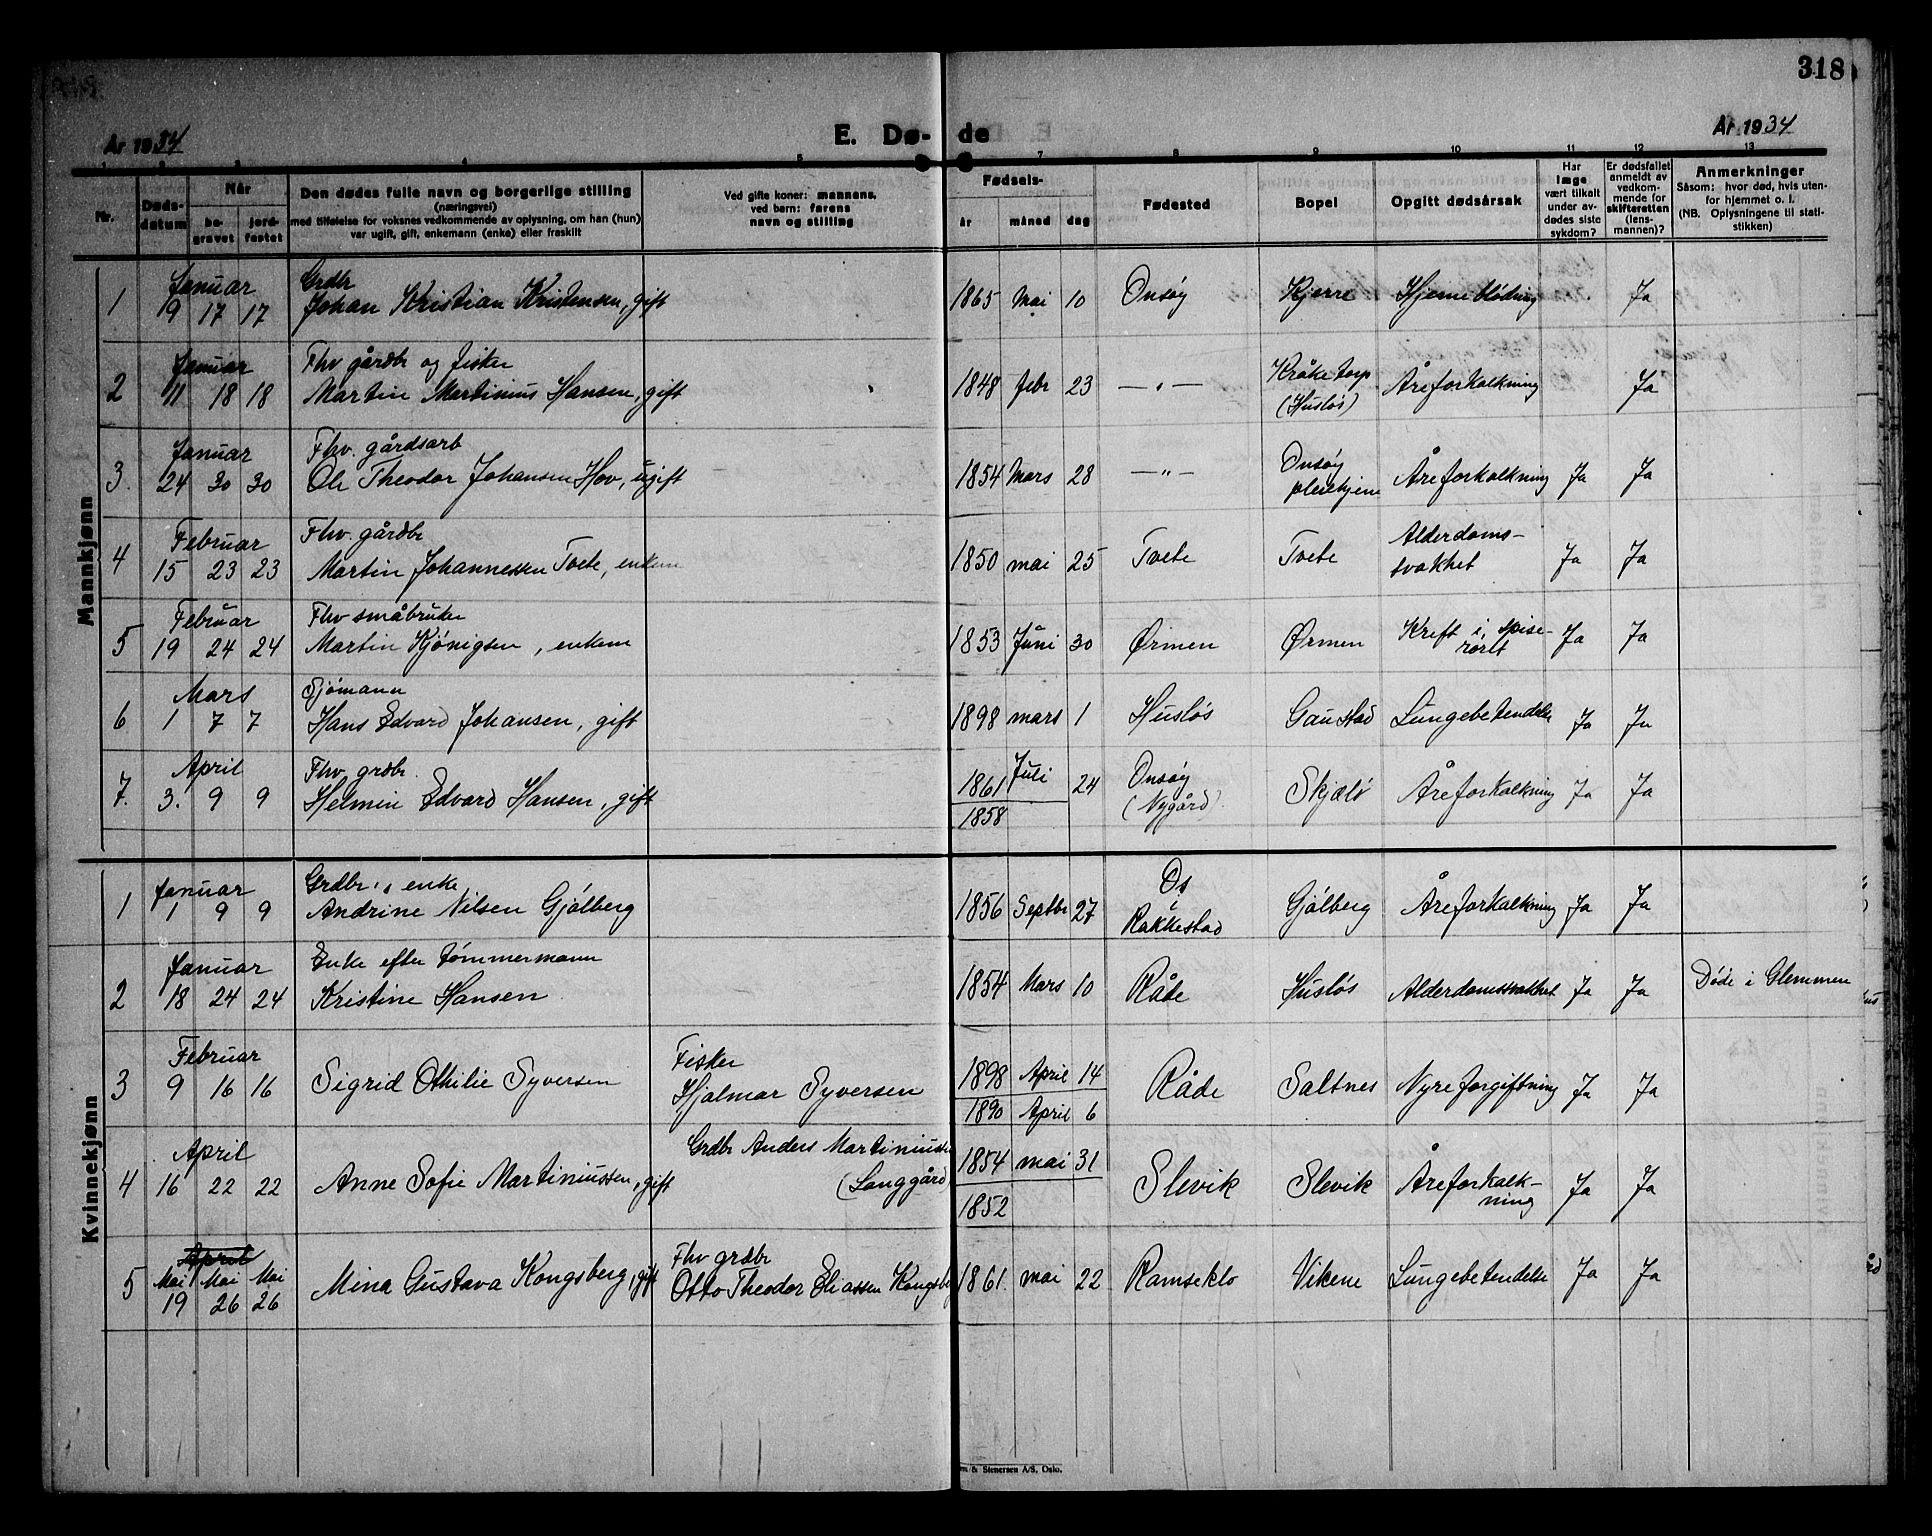 318
År 1934
E. Dø- de
År 1934
7 8 9 10 11 12 13
Nr.
Døds-
datum
Når
be-
gravet
jord-
festet
Den dødes fulle navn og borgerlige stilling
(næringsvei)
med tilføielse for voksnes vedkommende av oplysning, om han (hun)
var ugift, gift, enkemann (enke) eller fraskilt
Ved gifte koner: mannens,
ved barn: farens
navn og stilling
Fødsels-
år måned dag
Fødested
Bopel
Opgitt dødsårsak
Har
læge
vært tilkalt
under av-
dødes siste
sykdom?
Er dødsfallet
anmeldt av
vedkom-
mende for
skifteretten
(lens-
mannen)?
Anmerkninger
Såsom: hvor død, hvis uten-
for hjemmet o. l.
(NB. Oplysningene til stati-
stikken)
Mannkjønn
Januar Grdbr
1 9 17 17 Johan Kristian Kristensen, gift 1865 Mai 10 Onsøy Kjerre Hjerneblødning Ja
Januar Fhv gårdbr og fisker
2 11 18 18 Martin Martinius Hansen, gift 1848 febr 23 — " — Kråketorp (Husløs) Åreforkalkning Ja
Januar Fhv. gårdsarb
3. 24 30 30 Ole Theodor Johansen Hov, ugift 1854 Mars 28 — " — Onsøy pleiehjem Åreforkalkning Ja Ja
Februar Fhv. gårdbr
4 15 23 23 Martin Johannessen Tvete, enkem 1850 mai 25 Tvete Tvete Alderdoms- svakhet Ja Ja
Februar Fhv småbruker
5 19 24 24 Martin Kjönigsen, enkem 1853 Juni 30 Ørmen Ørmen Kreft i spise- røret Ja Ja
Mars Sjømann
6 1 7 7 Hans Edvard Johansen, gift 1898 mars 1 Husløs Gaustad Lungebetendelse Ja Ja
April Fhv. grdbr.
7. 3. 9 9 Helmin Edvard Hansen, gift 1861 Juli 24 Onsøy (Nygård) Skjælø Åreforkalkning Ja Ja
1858
Kvinnekjønn
Januar Grdbr.s enke
1 1 9 9 Andrine Nilsen Gjølberg 1856 Septbr 27 Os, Rakkestad Gjølberg Åreforkalkning Ja Ja
Januar Enke efter tømmermann
2 18 24 24 Kristine Hansen 1854 Mars 10 Råde Husløs Alderdomssvakhet Ja Ja Døde i Glemmen
Februar Fisker
3 9 16 16 Sigrid Othilie Syversen Hjalmar Syversen 1898 April 14 Råde Saltnes Nyreforgiftning Ja Ja
1890 April 6
April Grdbr Anders Martiniussen
4 16 22 22 Anne Sofie Martiniussen, gift (Langgård) 1854 mai 31 Slevik Slevik Åreforkalk- ning Ja Ja
1852
April
Mai Mai Mai Fhv grdbr
5 19 26 26 Mina Gustava Kongsberg, gift Otto Theodor Eliassen Kongsbe 1861. mai 22 Ramseklo Vikene Lungebetendelse Ja Ja
& Stenersen A/S, Oslo.